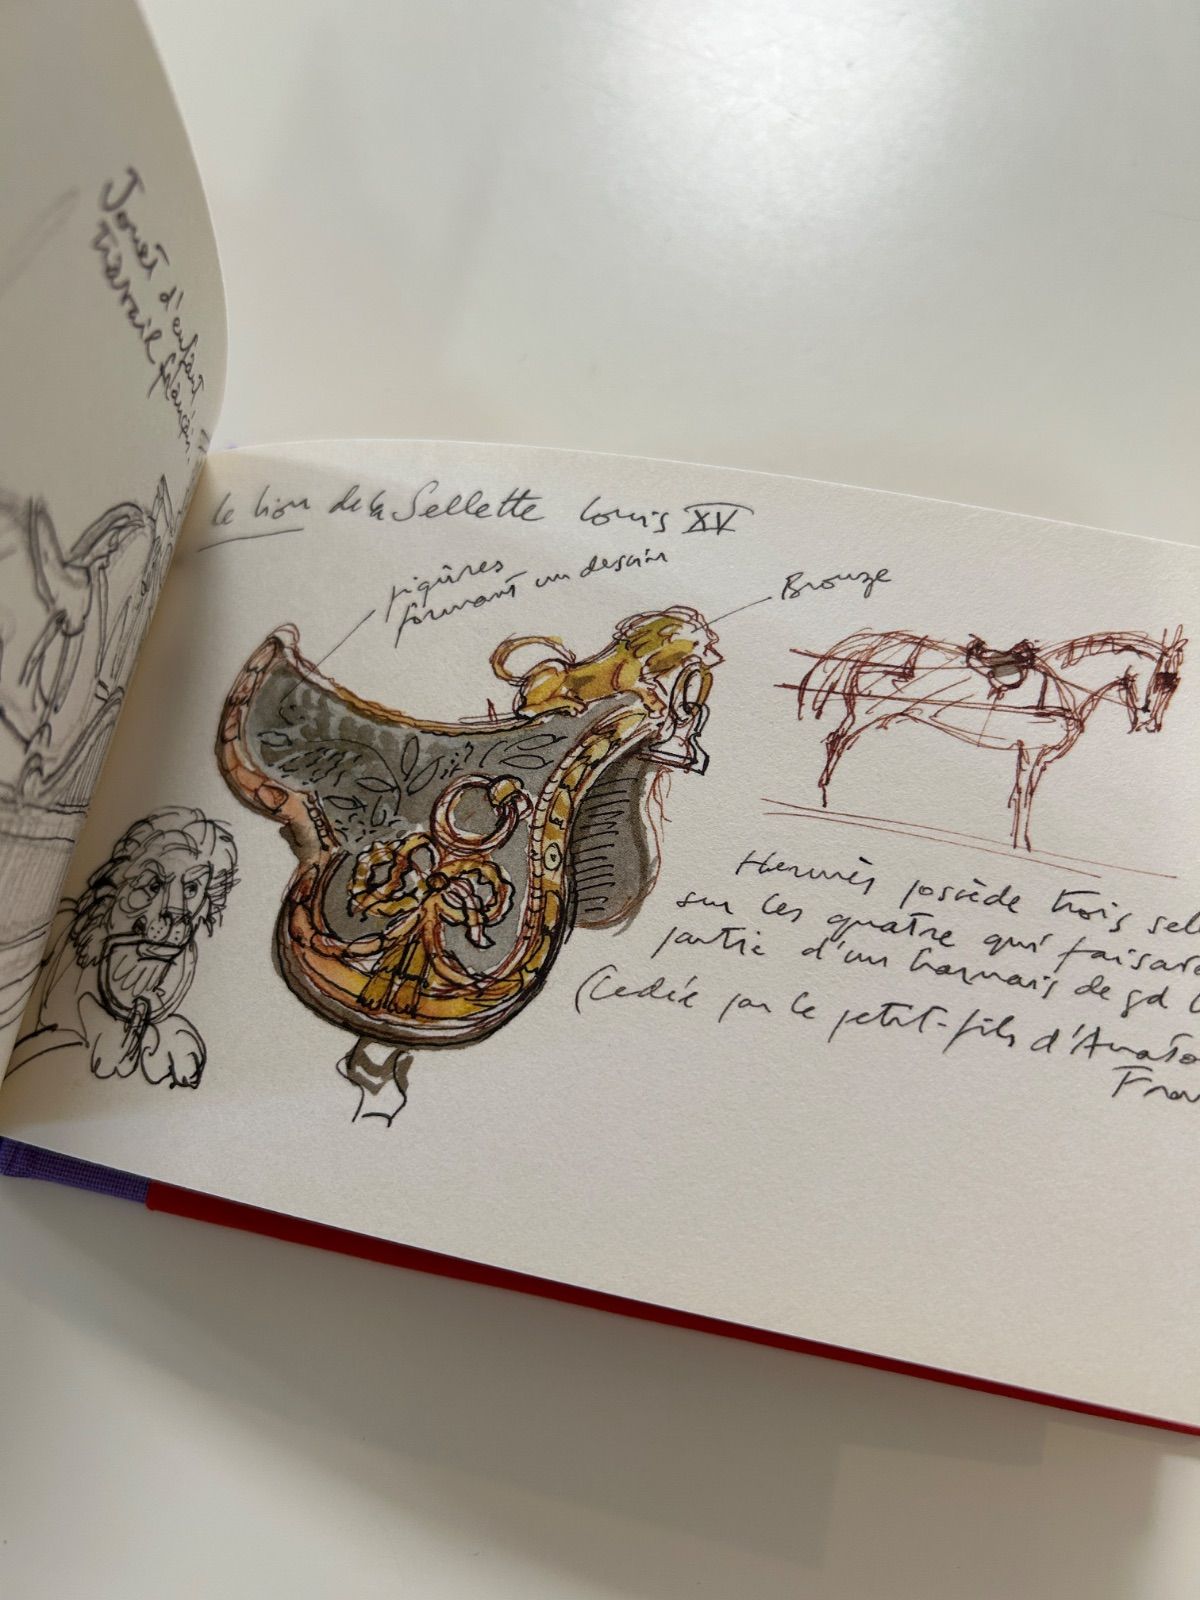 Jouet d'enfant
travail français
le lion de la Sellette Louis XV
piqûres
formant un dessin
Bronze
Hermès possède trois sell
sur les quatre qui faisai
partie d'un harnais de gd
(Cédée par le petit-fils d'Anato
Fran